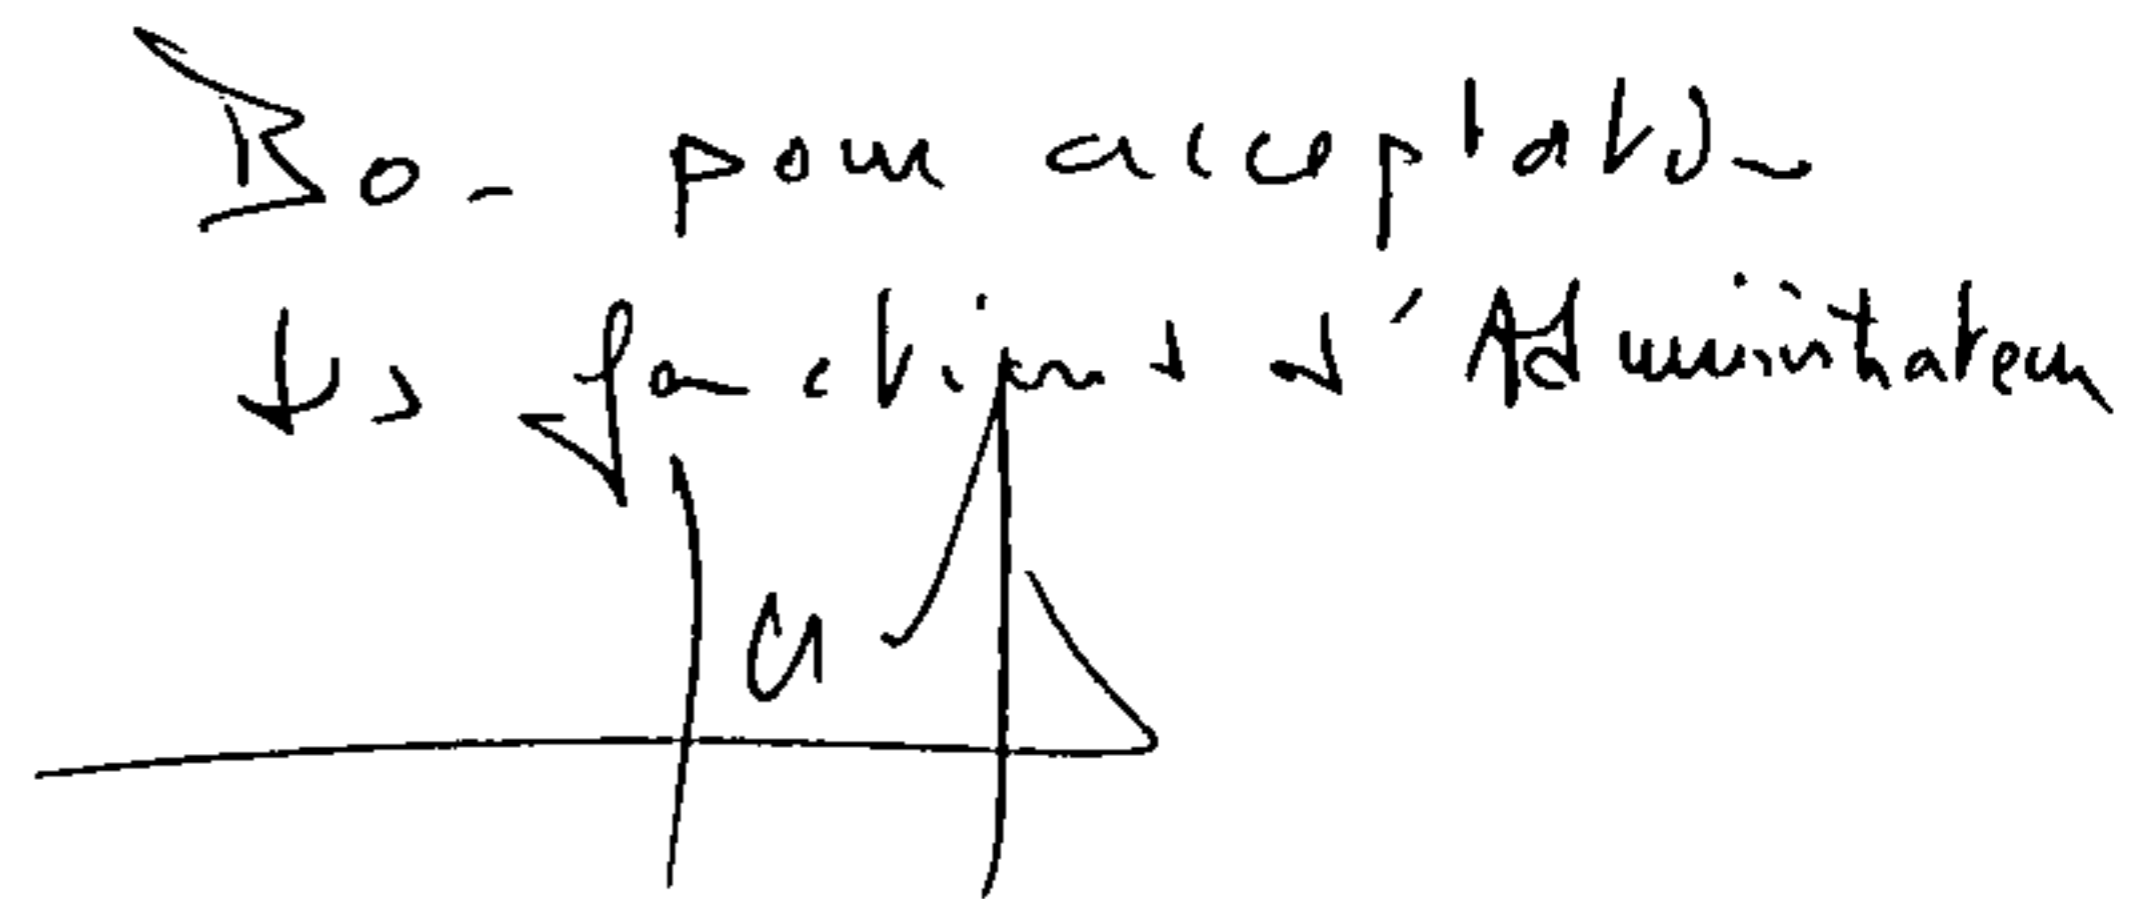 Bon pour acceptation
des fonctions d'Administrateur